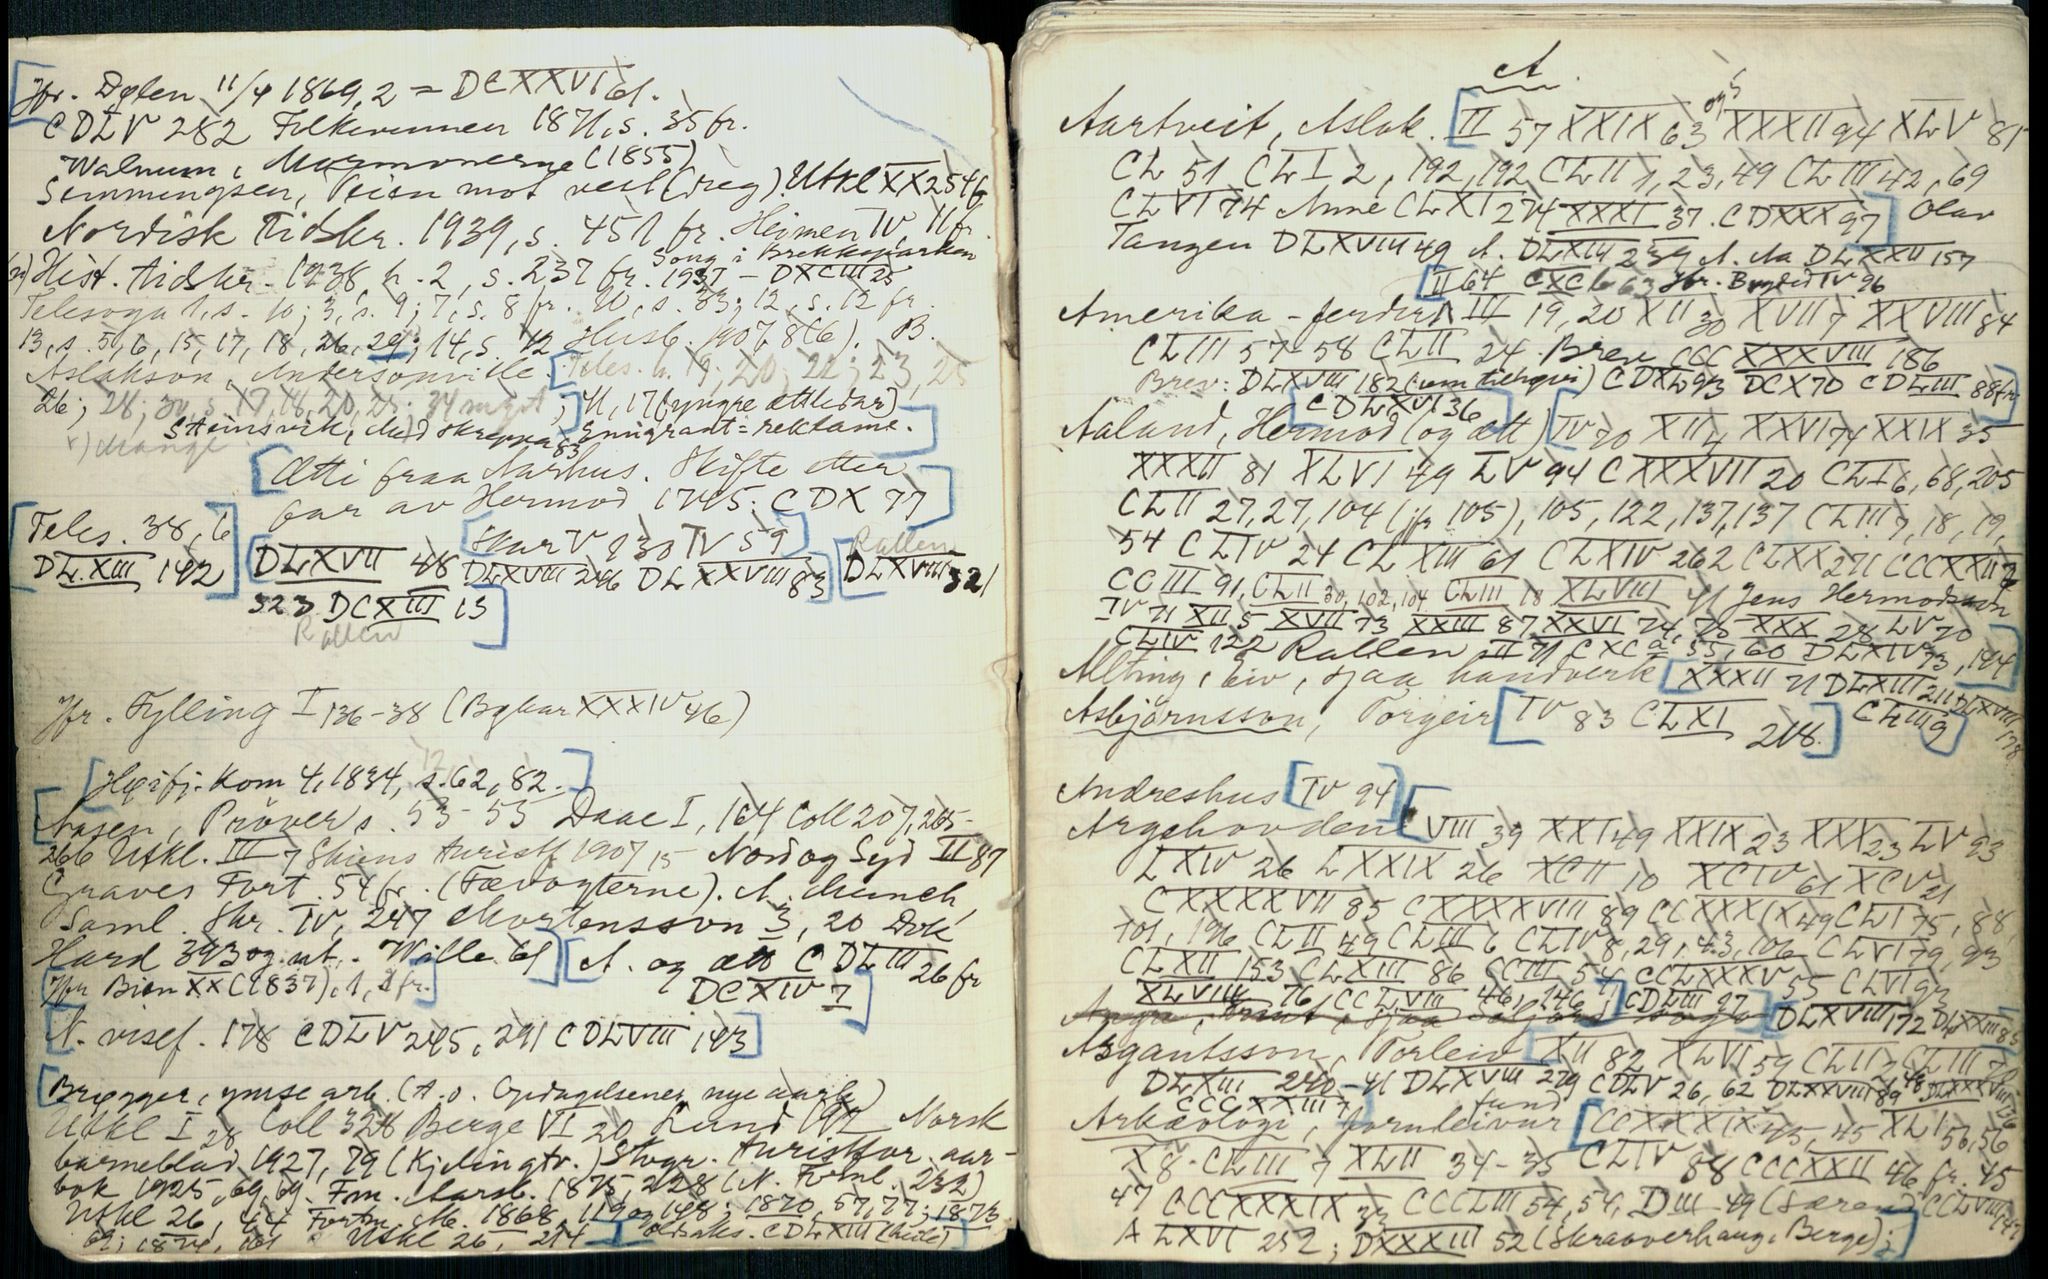 Jfr. Dølen 11/4 1869, 2 = DCXXVI 61.
CDLV 282 Folkevennen 1871, s. 35 fr.
Walnum, Mormonerne (1855)
Semmingsen, Veien mot vest (reg). Utkl XX 25 46
Nordisk Tidskr. 1939, s. 451 fr. Heimen IV, 11 fr.
Song i Brekkeparken
Hist. tidskr. 1938, h. 2, s. 237 fr. 1937 - DXCIII 25
Telesoga 1, s. 10; 3, s. 9; 7, s. 8 fr. 10, s. 83; 12, s. 12 fr.
13, s. 5, 6, 15, 17, 18, 26, 29; 14, s. 12 Husb. 1907, 8(6). B.
Aslakson, Andersonville. [Teles. h. 19; 20; 22; 23, 25
26; 28; 30, s. 17, 18, 20, 25; 34 mykje]; 41, 17 (yngre ættledar)
Steinsvik, Med skreppa 83 Emigrant=reklame.]
x) mange
[Ætti fraa Aarhus. Skifte etter
far av Hermod 1745: CDX 77]
[Teles. 38, 6
DLXIII 142]
[Skar V 130 IV 59]
Rallen
[DLXVII 48 DLXVIII 246 DLXXVIII 83] [DLXVIII 321
323 DCXIII 13]
Rallen
Jfr. Fylling I 136-38 (Bykar XXXIV 46)
[Höifj. kom 4, 1834, s. 62, 82.]
[Aasen, Prøver s. 53-55 Daae I, 164 Coll 207, 265-
266 Utkl. III 7 Skiens Turistf 1907 15 Nord og Syd II 87
Graves Fort. 54 fr. (Fævogterne). A. Munch,
Saml. Skr. IV, 247 Mortensson 3, 20 Dok
Hard 393 og ut. - Wille 61] [A. og ætt CDLIII 26 fr
DCXIV 7]
[Jfr Bien XX (1837), 1, 2 fr.]
[N. visef. 178 CDLV 245, 291 CDLVIII 143]
[Brøgger, ymse arb. (A. o. Opdagelsenes nye aarh.)
Utkl I 28 Coll 328 Berge VI 20 Lund 192 Norsk
barneblad 1927, 79 (Kjelingtv.) Stvgr. Turistfor. aar-
bok 1925, 69, 69. Fm. Aarsb. 1875, 228 (N. Forml. 232)
Utkl 26, 44 Fortm. M. 1868, 119 og 148; 1870, 57, 77; 1873
69; 1874, 161 Utkl 26, 214] oldsaks. CDLXIII (heile)]
A.
Aartveit, Aslak. [II 57 XXIX 63 og 5 XXXII 94 XLV 81
CL 51 CLI 2, 192, 192 CLII 1, 23, 49 CLIII 42, 69
CLVI 74 Anne CLXI 274 XXXI 37. CDXXX 97] Olav
Tangen DLXVIII 49 A. DLXIII 239 A. Aa DLXXII 157
[II 64 CXC b 63 Jfr. Bygdeb IV 96
Amerika-ferder III 19, 20 XII 30 XVII 7 XXVIII 84
CLIII 57-58 CLII 24 Brev CCCXXXVIII 186
Brev: DLXVIII 182 CDXL 93 DCX 70 CDLIII 88 fr]
[CDLXVI 36]
Aaland, Hermod (og ætt) [IV 70 XII 4 XXVI 74 XXIX 35
XXXII 81 XLVI 49 LV 94 CXXXVII 20 CLI 6, 68, 205
CLII 27, 27, 104 (jfr 105), 105, 122, 137, 137 CLIII 7, 18, 19,
54 CLIV 24 CLXIII 61 CLXIV 262 CLXX 271 CCCXXII 2
CCIII 91, CLII 30, 102, 104 CLIII 18 XLVIII 41 Jens Hermodsson
IV 71 XII 5 XVII 73 XXIII 87 XXVI 74, 75 XXX 28 LV 70
CLIV 122 Rallen II 71 CXC a 55, 60 DLXIV 73, 144]
Allting, Eiv, sjaa handverk [XXXII 71 DLXIII 211 DLXVIII 178
Asbjörnsson, Torgeir [IV 83 CLXI 218.] CLIII 9]
Andreshus [IV 94]
Argehovden [VIII 39 XXI 49 XXIX 23 XXX 23 LV 93
LXIV 26 LXXIX 26 XCII 10 XCIV 61 XCV 21
CXXXXVII 85 CXXXXVIII 89 CCXXXIX 49 CLI 75, 88,
101, 196 CLII 49 CLIII 6 CLIV 8, 29, 43, 106 CLVI 79, 93
CLXII 153 CLXIII 86 CCIII 54 CCLXXXV 55 CLVI 93
XLVIII 76 CCLVIII 46, 146] [CDLIII 27]
[DLXVIII 172 DLXXIII 83
Asgautsson, Torleiv [XII 82 XLVI 59 CLII 7 CLIII 70
DLXIII 240-41 DLXVIII 279 CDLV 26, 62 DLXXVIII 89
CCCXXIII 7]
fund
Arkæologi, fornleivar [CCXXXIX 43, 45 XLI 56, 56
X 8 CLIII 7 XLII 34-35 CLIV 58 CCCXXII 46 fr. 45
47 CCCXXXIX 33 CCCLIII 54, 54, DIII 49 CCLVIII 147
A LXVI 252; DXXXIII 52 (Skraaverhaug, Berge);]